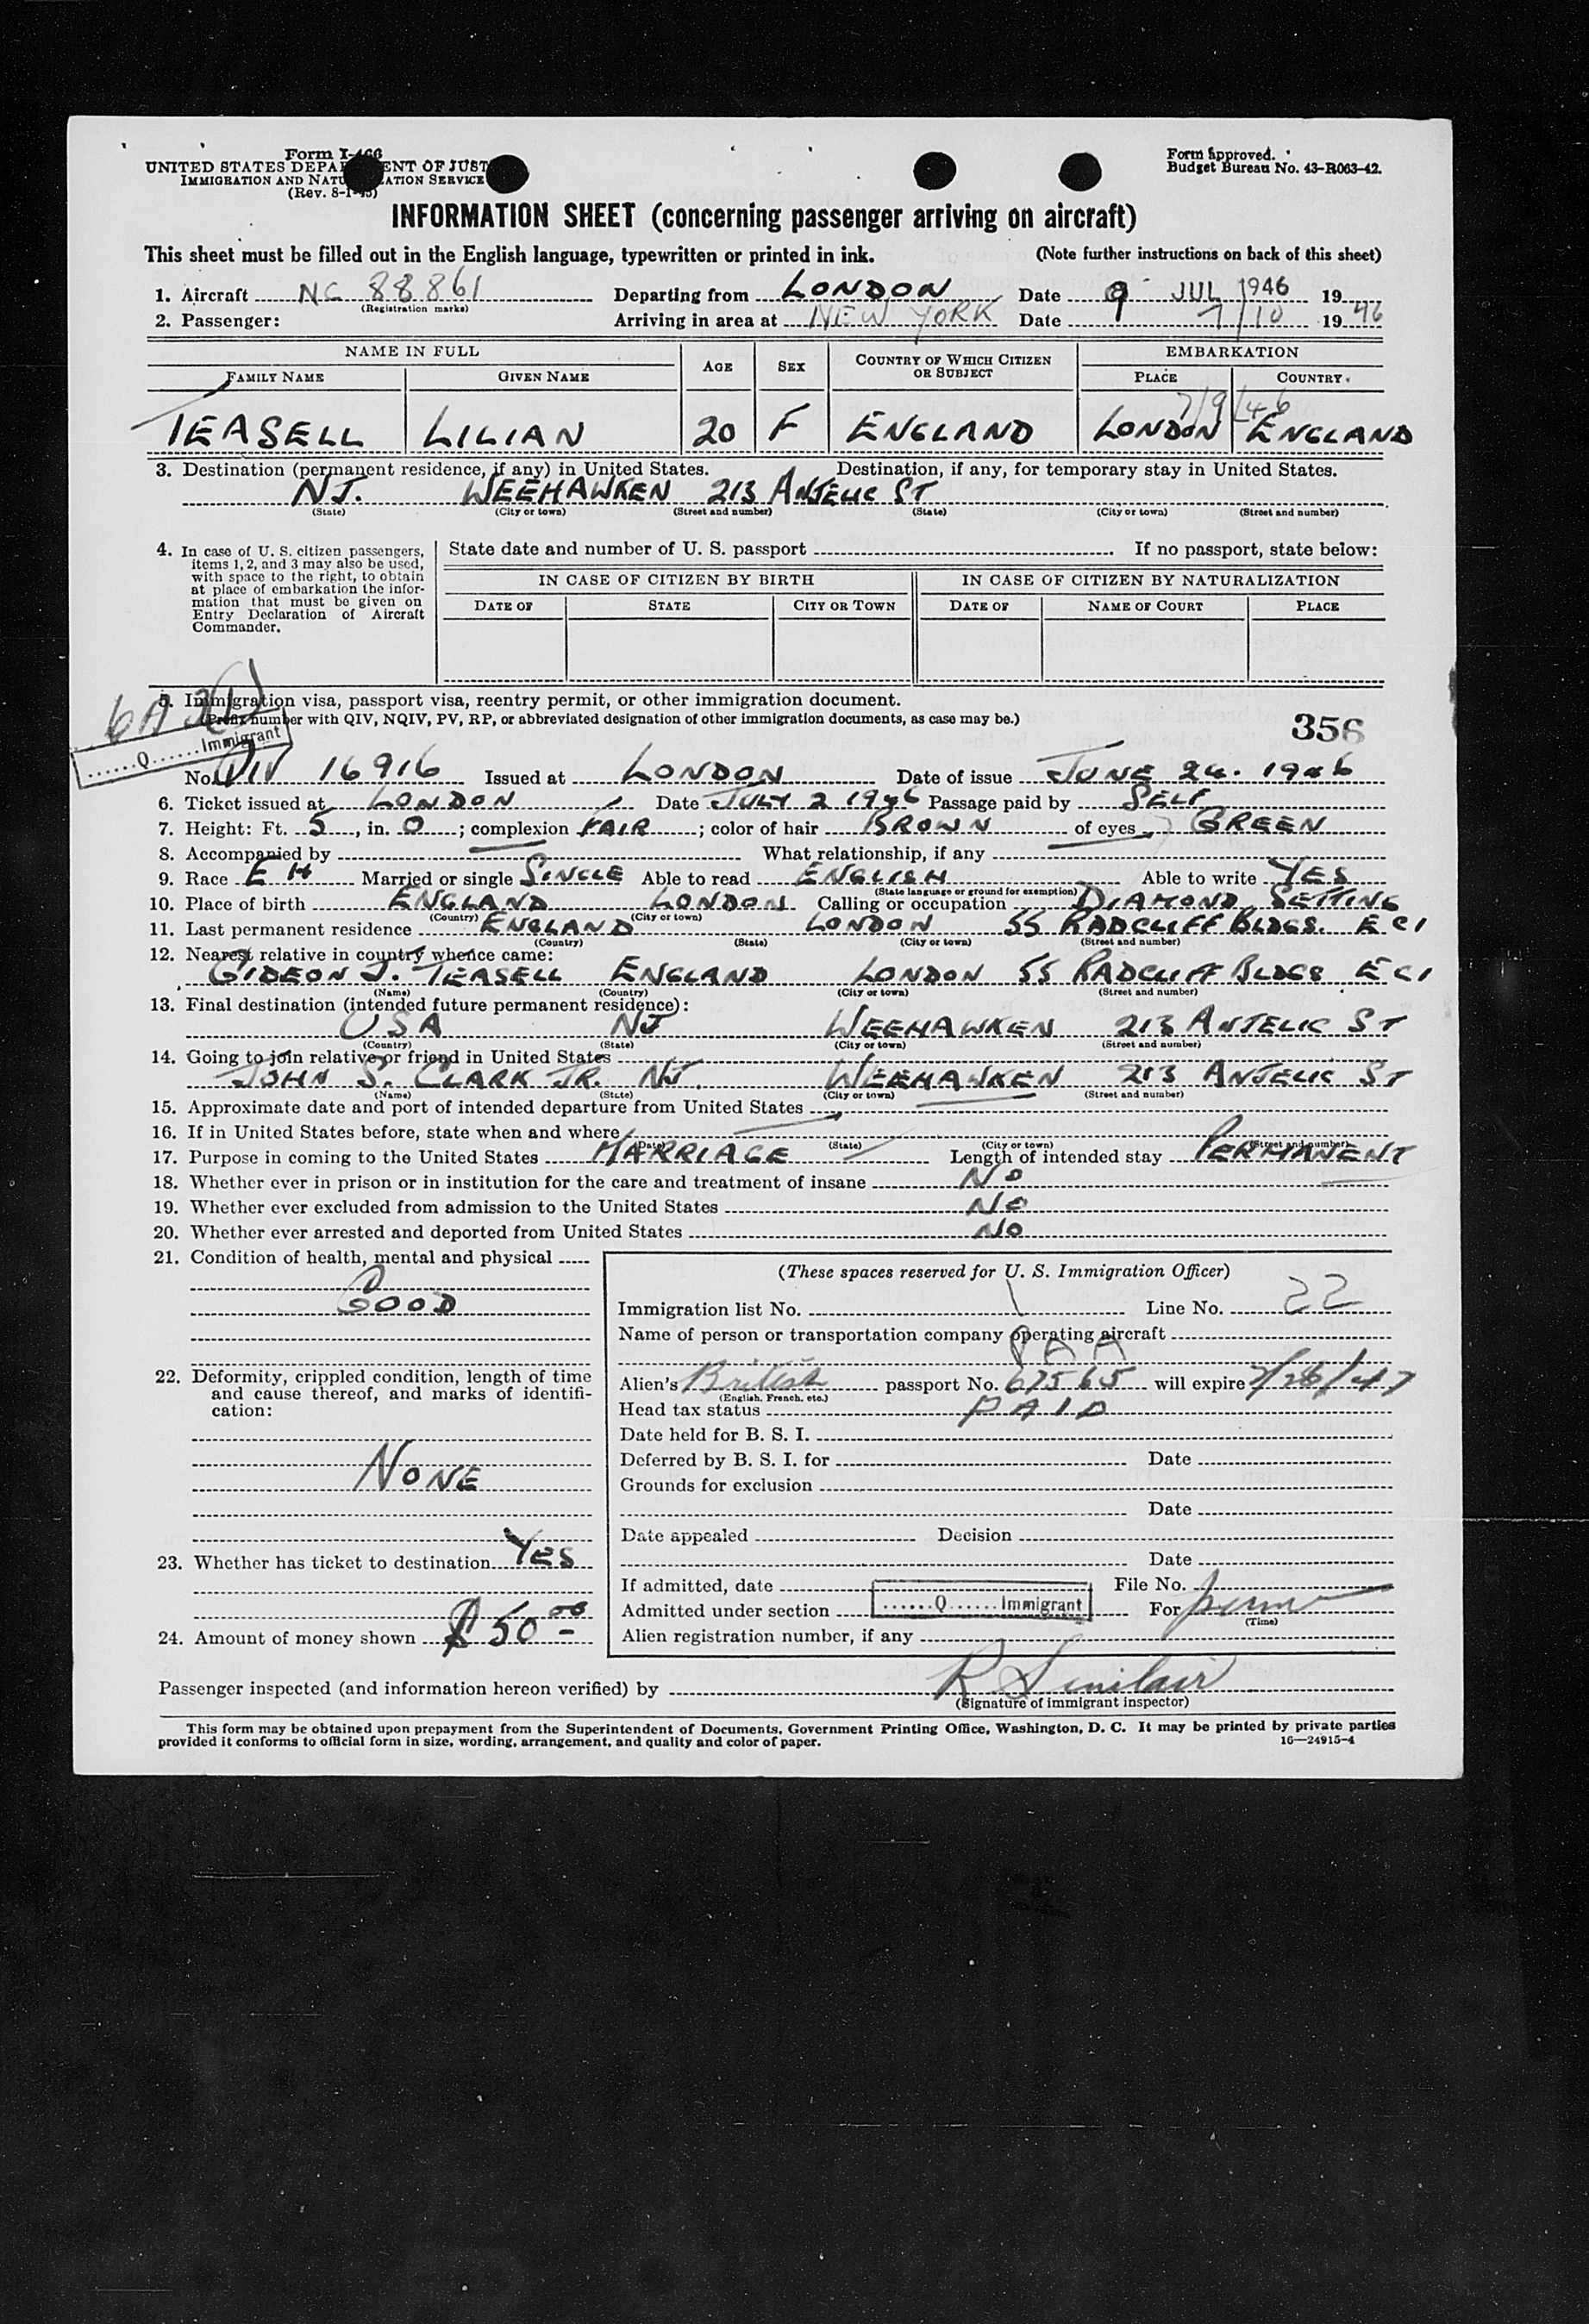 Form I-466
UNITED STATES DEPA ENT OF JUST
IMMIGRATION AND NATU ATION SERVICE
(Rev. 8-1-45)
Form approved.
Budget Bureau No. 43-R063-42.
INFORMATION SHEET (concerning passenger arriving on aircraft)
This sheet must be filled out in the English language, typewritten or printed in ink. (Note further instructions on back of this sheet)
1. Aircraft NC 88861 Departing from LONDON Date 9 JUL 1946 19
(Registration marks)
2. Passenger: Arriving in area at NEW YORK Date 7/10 1946
NAME IN FULL AGE SEX COUNTRY OF WHICH CITIZEN OR SUBJECT EMBARKATION
FAMILY NAME GIVEN NAME PLACE COUNTRY
7/9/46
TEASELL LILIAN 20 F ENGLAND LONDON ENGLAND
3. Destination (permanent residence, if any) in United States. Destination, if any, for temporary stay in United States.
NJ. WEEHAWKEN 213 ANJELIC ST
(State) (City or town) (Street and number) (State) (City or town) (Street and number)
4. In case of U. S. citizen passengers,
items 1, 2, and 3 may also be used,
with space to the right, to obtain
at place of embarkation the infor-
mation that must be given on
Entry Declaration of Aircraft
Commander.
State date and number of U. S. passport If no passport, state below:
IN CASE OF CITIZEN BY BIRTH IN CASE OF CITIZEN BY NATURALIZATION
DATE OF STATE CITY OR TOWN DATE OF NAME OF COURT PLACE
5. Immigration visa, passport visa, reentry permit, or other immigration document.
(Prefix number with QIV, NQIV, PV, RP, or abbreviated designation of other immigration documents, as case may be.)
356
......Q......Immigrant
No. QIV 16916 Issued at LONDON Date of issue JUNE 24. 1946
6. Ticket issued at LONDON Date JULY 2 1946 Passage paid by SELF
7. Height: Ft. 5, in. 0; complexion FAIR; color of hair BROWN of eyes GREEN
8. Accompanied by What relationship, if any
9. Race EH Married or single SINGLE Able to read ENGLISH Able to write YES
(State language or ground for exemption)
10. Place of birth ENGLAND LONDON Calling or occupation DIAMOND SETTING
(Country) (City or town)
11. Last permanent residence ENGLAND LONDON 55 RADCLIFF BLDGS. EC1
(Country) (State) (City or town) (Street and number)
12. Nearest relative in country whence came:
GIDEON J. TEASELL ENGLAND LONDON 55 RADCLIFF BLDGS EC1
(Name) (Country) (City or town) (Street and number)
13. Final destination (intended future permanent residence):
USA NJ WEEHAWKEN 213 ANJELIC ST
(Country) (State) (City or town) (Street and number)
14. Going to join relative or friend in United States
JOHN S. CLARK JR. NJ. WEEHAWKEN 213 ANJELIC ST
(Name) (State) (City or town) (Street and number)
15. Approximate date and port of intended departure from United States
16. If in United States before, state when and where
(Date) (State) (City or town) (Street and number)
17. Purpose in coming to the United States MARRIAGE Length of intended stay PERMANENT
18. Whether ever in prison or in institution for the care and treatment of insane NO
19. Whether ever excluded from admission to the United States NO
20. Whether ever arrested and deported from United States NO
21. Condition of health, mental and physical
GOOD
22. Deformity, crippled condition, length of time
and cause thereof, and marks of identifi-
cation:
NONE
23. Whether has ticket to destination YES
24. Amount of money shown $50 00
(These spaces reserved for U. S. Immigration Officer)
Immigration list No. Line No. 22
Name of person or transportation company operating aircraft
PAA
Alien's British passport No. 67565 will expire
(English, French, etc.)
Head tax status PAID
Date held for B. S. I.
Deferred by B. S. I. for Date
Grounds for exclusion
Date
Date appealed Decision
Date
If admitted, date File No.
Admitted under section ......Q......Immigrant For perm
(Time)
Alien registration number, if any
Passenger inspected (and information hereon verified) by R Sinclair
(Signature of immigrant inspector)
This form may be obtained upon prepayment from the Superintendent of Documents, Government Printing Office, Washington, D. C. It may be printed by private parties
provided it conforms to official form in size, wording, arrangement, and quality and color of paper. 16—24915-4